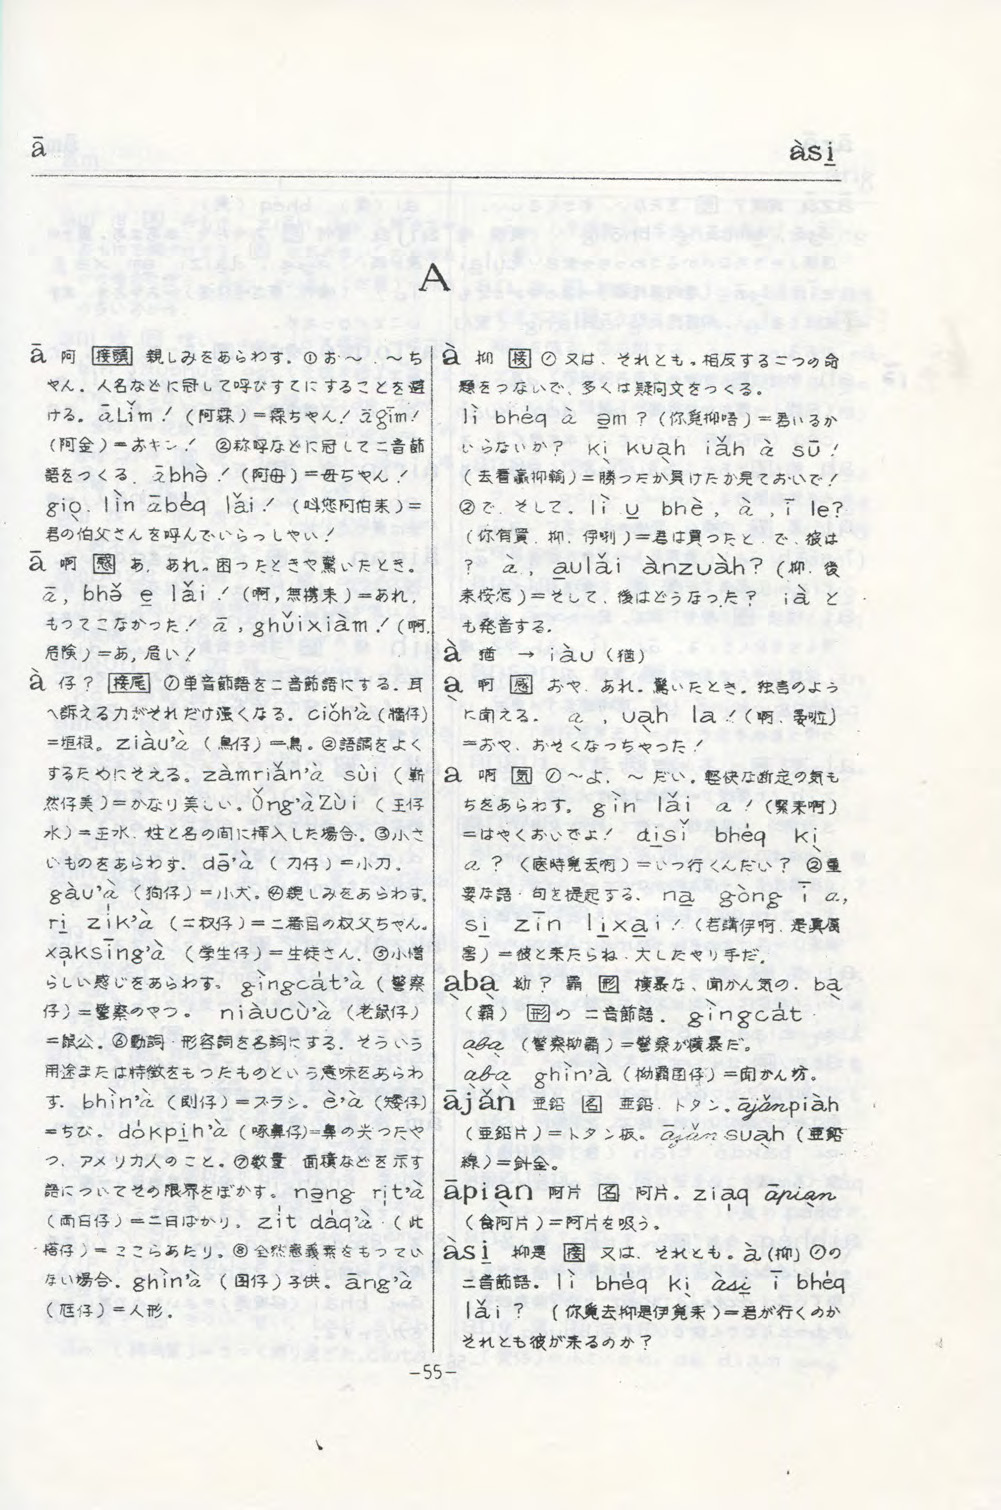 ā
àsi̱
A
ā 阿 接頭 親しみをあらわす。①お~.~ち
ゃん。人名などに冠して呼びすてにすることを避
ける。āLǐm! (阿霖)=霖ちゃん! āgīm!
(阿金)=おキン! ②称呼などに冠して二音節
語をつくる. ābhə̀! (阿母)=母ちゃん!
gio̱. lìn ābéq lǎi! (叫您阿伯来)=
君の伯父さんを呼んでいらっしゃい!
ā 啊 感 あ. あれ。困ったときや驚いたとき。
ā, bhə̌ e̱ lǎi! (啊,無携来)=あれ.
もってこなかった! ā, ghǔixiàm! (啊.
危険)=あ, 危い!
à 仔? 接尾 ①単音節語を二音節語にする. 耳
へ訴える力がそれだけ強くなる. ciǒh'à (墻仔)
=垣根。ziàu'à (鳥仔)=鳥。②語調をよく
するためにそえる。zàmriǎn'à sùi (嶄
然仔美)=かなり美しい。Ǒng'àZùi (王仔
水)=王水. 姓と名の間に挿入した場合. ③小さ
いものをあらわす. də̄'à (刀仔)=小刀.
gàu'à (狗仔)=小犬。④親しみをあらわす.
ri̱ zík'à (二叔仔)=二番目の叔父ちゃん。
xa̱ksīng'à (学生仔)=生徒さん. ⑤小憎
らしい感じをあらわす。gìngcát'à (警察
仔)=警察のやつ。 niàucù'à (老鼠仔)
=鼠公。⑥動詞・形容詞を名詞にする. そういう
用途または特徴をもったものという意味をあらわ
す. bhìn'à (刷仔)=ブラシ。è'à (矮仔)
=ちび。dókpi̱h'à (啄鼻仔)=鼻の尖ったや
つ. アメリカ人のこと。⑦数量 面積などを示す
語についてその限界をぼかす。 nə̱ng ri̍t'à
(両日仔)=二日ばかり。zi̍t dáq'à (此
搭仔)=ここらあたり。⑧全然意義素をもってい
ない場合. ghìn'à (囡仔)子供。āng'à
(尫仔)=人形.
à 抑 接 ① 又は. それとも。相反する二つの命
題をつないで、多くは疑向文をつくる。
lì bhéq à ə̱m? (你覓抑唔)=君いるか
いらないか? kì kua̱h iǎh à sū!
(去看贏抑輸)=勝ったか負けたか見ておいで!
②で. そして。lì u̱ bhè, à, ī le?
(你有買. 抑. 伊咧)=君は買ったと. で. 彼は
? à, a̱ulǎi ànzuàh? (抑. 後
来按怎)=そして. 後はどうなった? ià と
も発音する.
à 猶 → iàu (猶)
a̱ 啊 感 おや. あれ。驚いたとき。独言のよう
に聞える。 a̱, ua̱h la! (啊. 晏啦)
=おや. おそくなっちゃった!
a 啊 気 ①~よ. ~だい。軽快な断定の気も
ちをあらわす。gìn lǎi a! (緊来啊)
=はやくおいでよ! di̱sǐ bhéq kì
a? (底時覓去啊)=いつ行くんだい? ②重
要な語・句を提起する. na̱ gòng ī a,
si̱ zīn li̱xa̱i! (若講伊啊. 是真厲
害)=彼と来たらね. 大したやり手だ.
àbà 拗? 霸 形 横暴な、聞かん気の. bà
(霸) 形の 二音節語. gìngcát
àbà (警察拗霸)=警察が横暴だ。
àbà ghìn'à (拗霸囡仔)=聞かん坊。
ājǎn 亜鉛 名 亜鉛. トタン。ājǎnpiàh
(亜鉛片)=トタン板。ājǎnsuàh (亜鉛
線)=針金。
āpiàn 阿片 名 阿片。zia̍q āpiàn
(食阿片)=阿片を吸う。
àsi̱ 抑是 接 又は. それとも。à (抑) ①の
二音節語。lì bhéq kì àsi̱ ī bhéq
lǎi? (你覓去抑是伊覓来)=君が行くのか
それとも彼が来るのか?
-55-